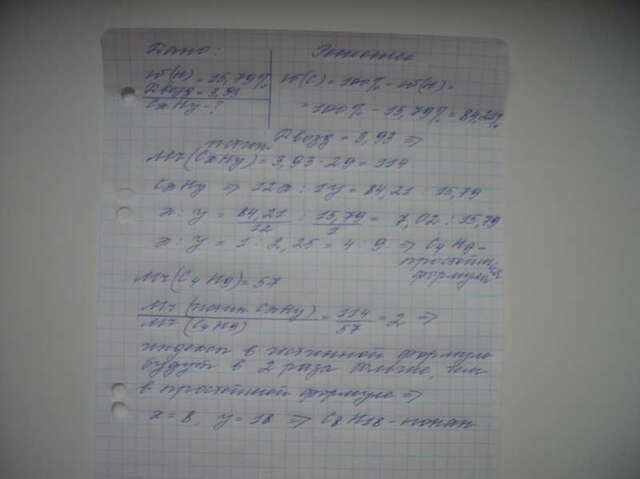 Дано: Решение
w(H) = 15,79% w(C) = 100% - w(H) =
Dвозд = 3,93 = 100% - 15,79% = 84,21%
CxHy - ?
Dвозд = 3,93 ⇒
Mr(CxHy) = 3,93 · 29 = 114
CxHy ⇒ 12x : 1y = 84,21 : 15,79
x : y = 84,21/12 : 15,79/1 = 7,02 : 15,79
x : y = 1 : 2,25 = 4 : 9 ⇒ C4H9 -
простейш.
формула
Mr(C4H9) = 57
Mr(истин. CxHy)/Mr(C4H9) = 114/57 = 2 ⇒
индексы в истинной формуле
будут в 2 раза больше, чем
в простейшей формуле ⇒
x = 8, y = 18 ⇒ C8H18 -